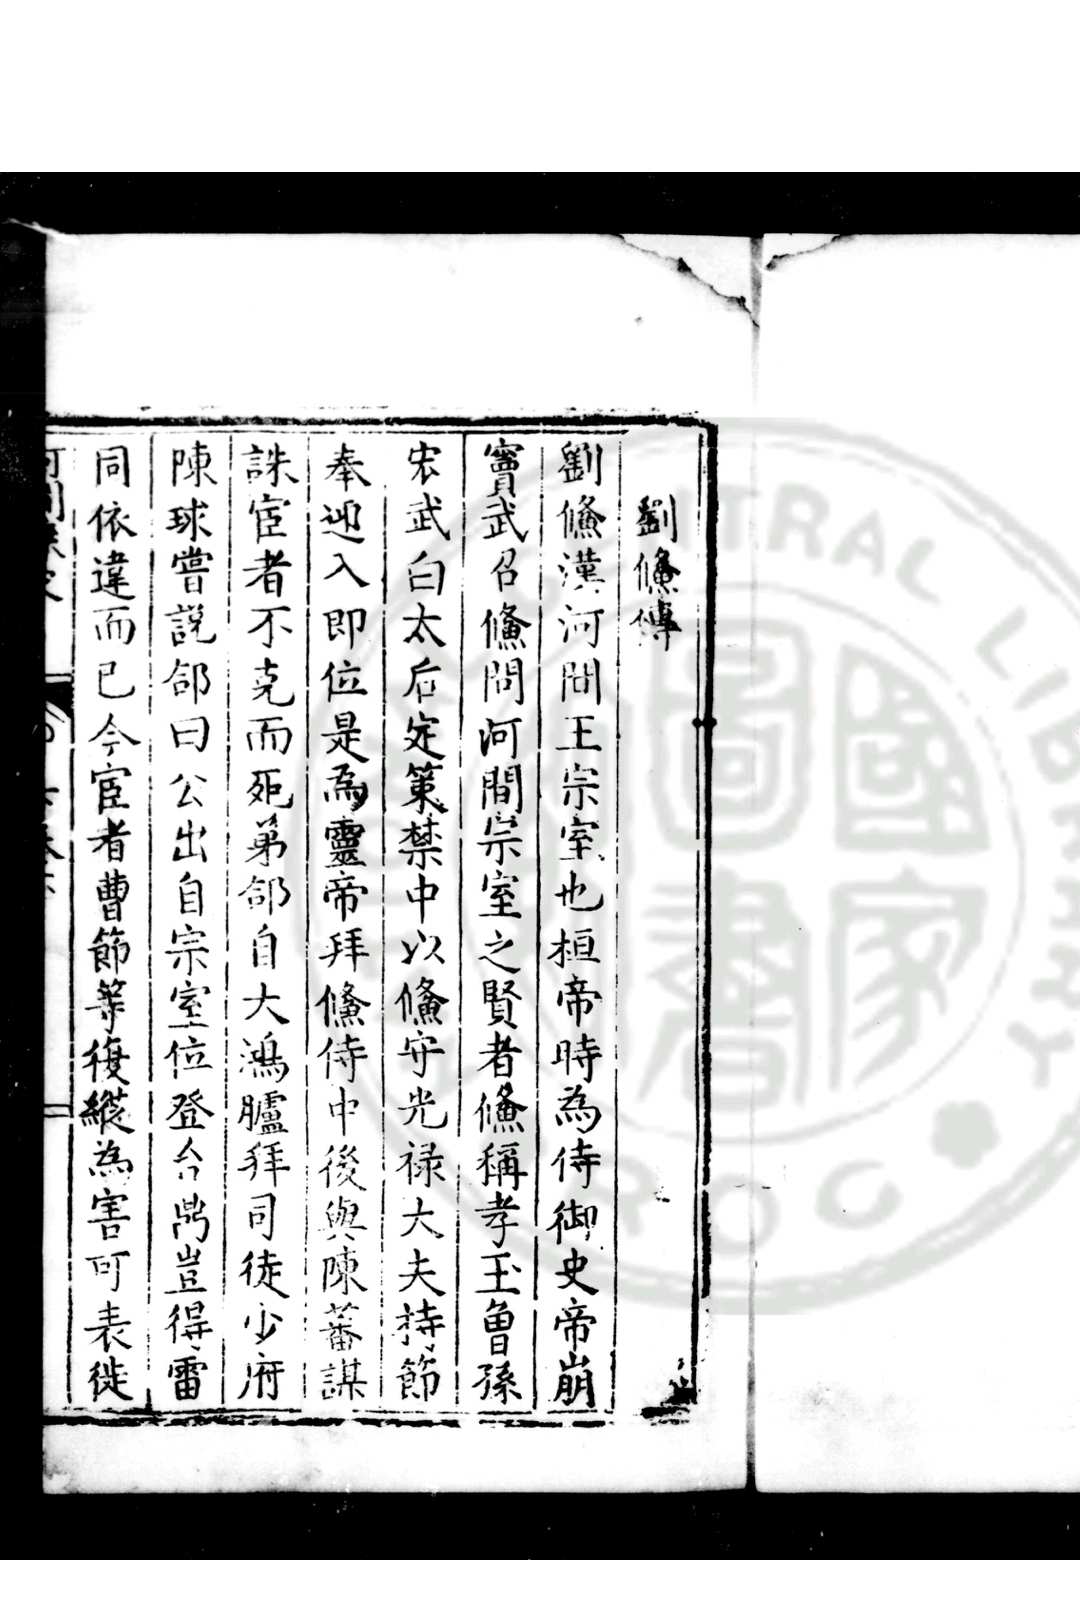 劉儵傳
劉儵漢河間王宗室也桓帝時為侍御史帝崩
竇武召儵問河間宗室之賢者儵稱孝王曾孫
宏武白太后定策禁中以儵守光祿大夫持節
奉迎入即位是為靈帝拜儵侍中後與陳蕃謀
誅宦者不克而死弟郃自大鴻臚拜司徒少府
陳球嘗説郃曰公出自宗室位登台鼎豈得雷
同依違而已今宦者曹節等復縱為害可表徙
國家圖書
CENTRAL LIBRARY
ROC